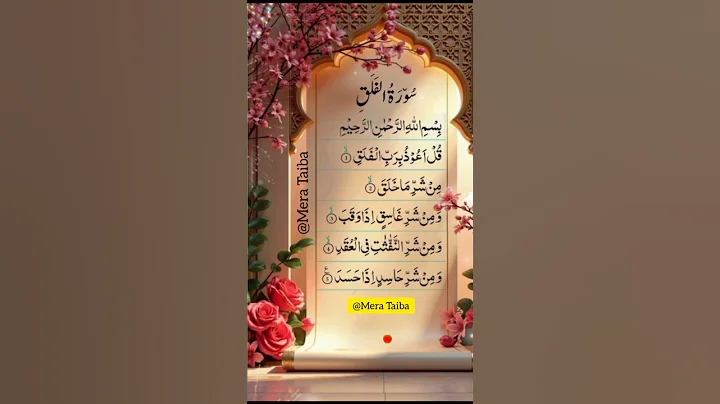 سُوْرَةُ الفَلَقِ
بِسْمِ اللهِ الرَّحْمٰنِ الرَّحِيْمِ
قُلْ اَعُوْذُ بِرَبِّ الْفَلَقِ ۙ ①
مِنْ شَرِّ مَا خَلَقَ ۙ ②
وَ مِنْ شَرِّ غَاسِقٍ اِذَا وَقَبَ ۙ ③
وَ مِنْ شَرِّ النَّفّٰثٰتِ فِی الْعُقَدِ ۙ ④
وَ مِنْ شَرِّ حَاسِدٍ اِذَا حَسَدَ ۧ ⑤
@Mera Taiba
@Mera Taiba